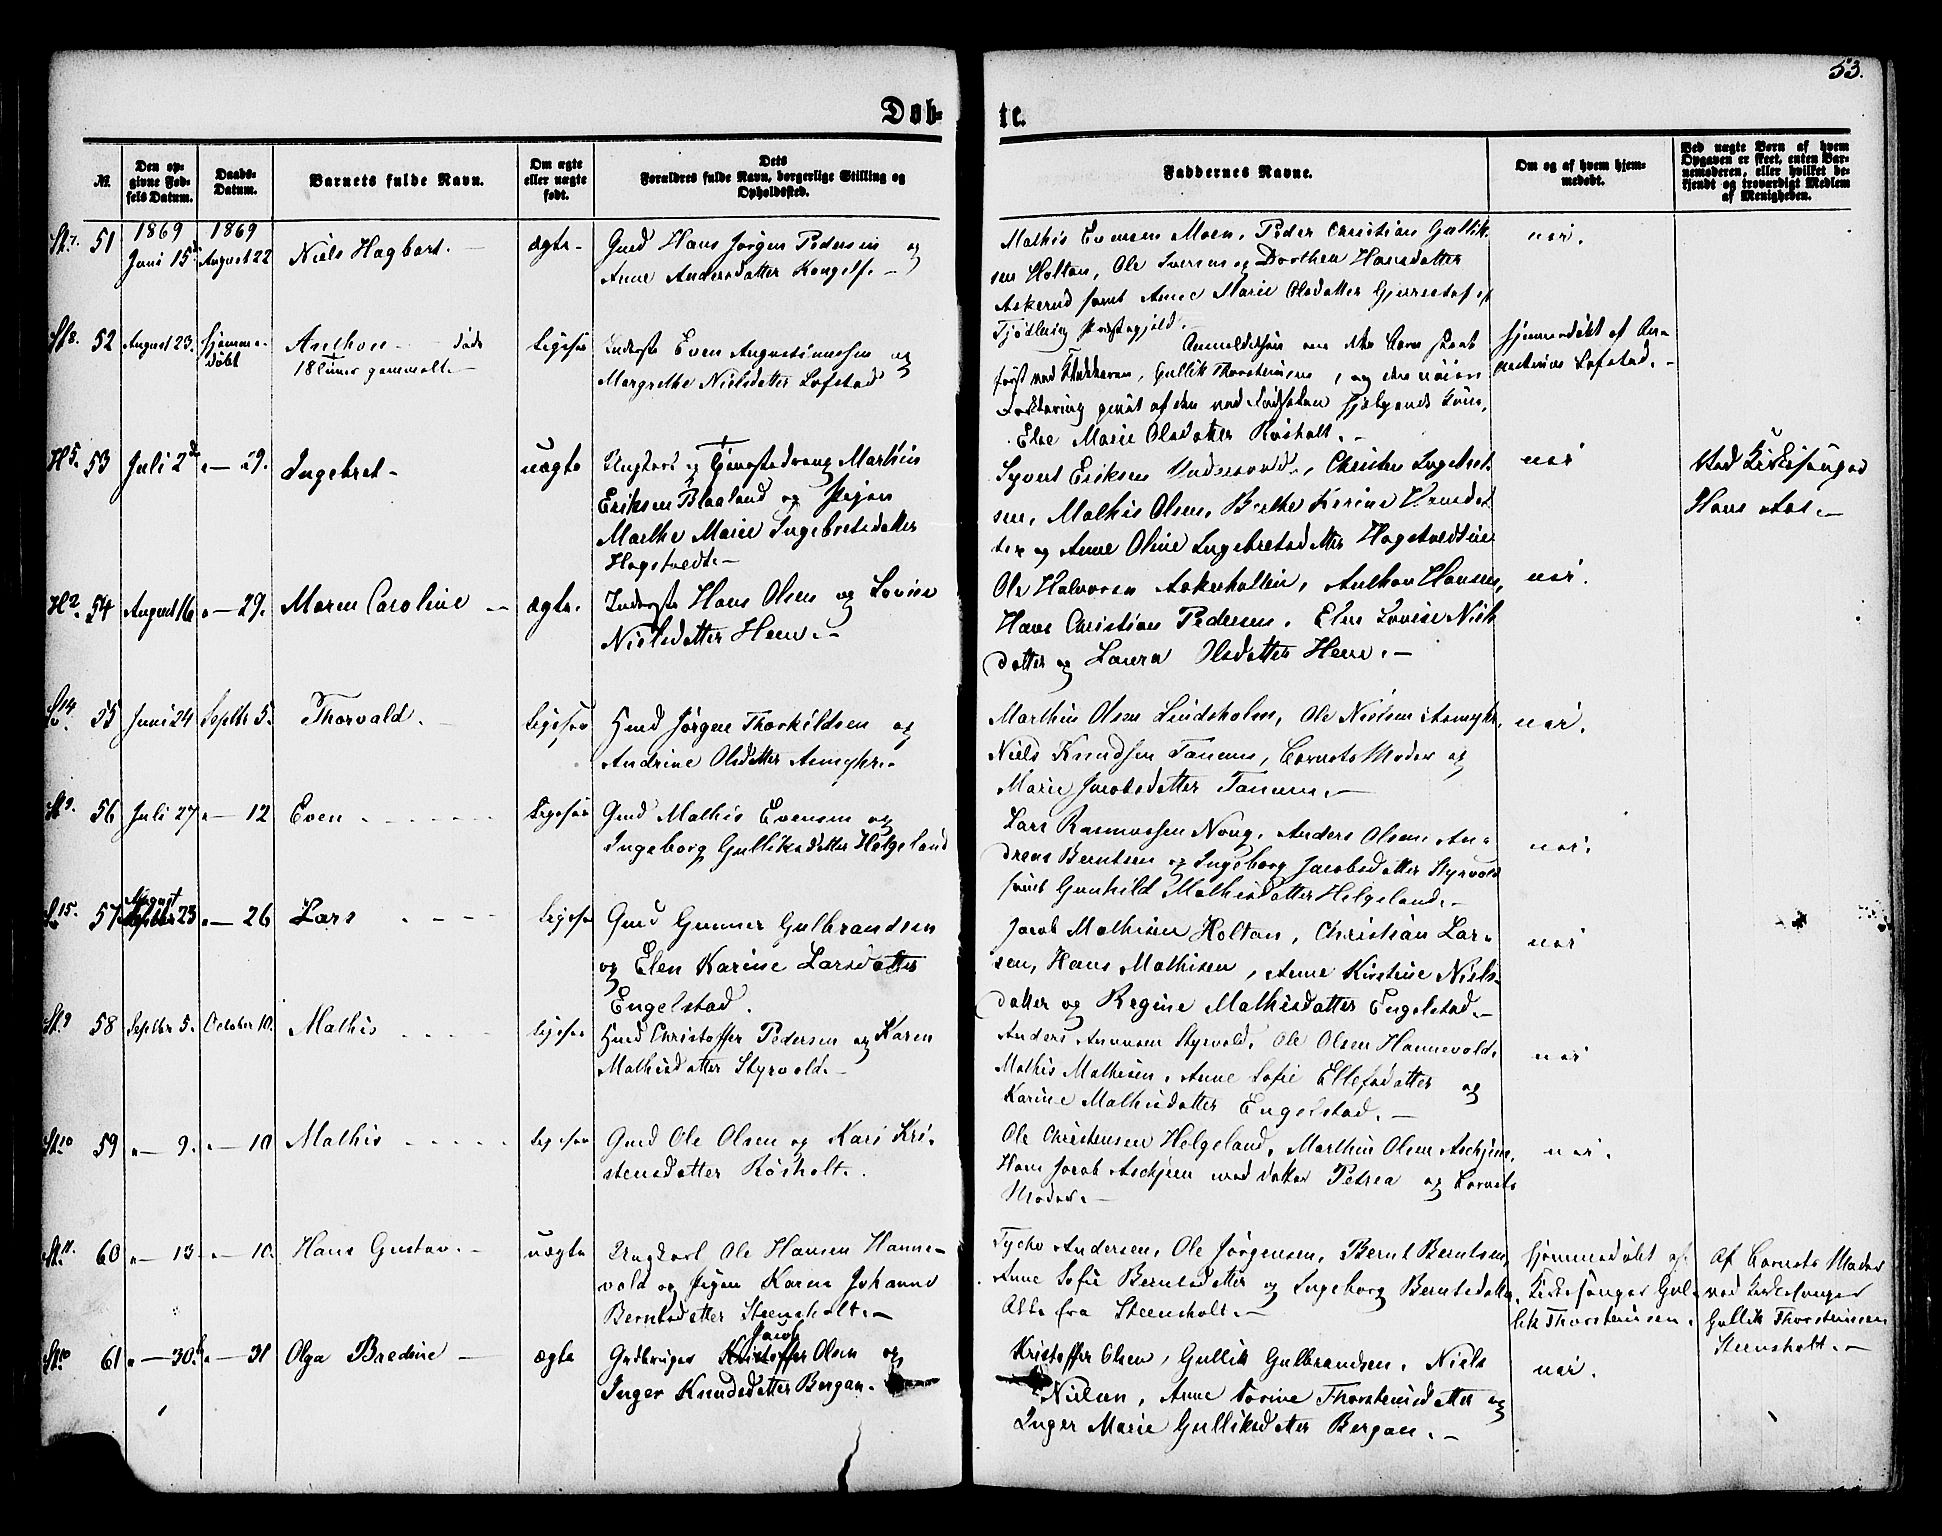 53.
Døb-
te.
№.
Den op-
givne Fød-
sels Datum.
Daabs-
Datum.
Barnets fulde Navn.
Om ægte
eller uægte
født.
Dets
Forældres fulde Navn, borgerlige Stilling og
Opholdssted.
Faddernes Navne.
Om og af hvem hjem-
medøbt.
Ved uægte Børn af hvem
Opgaven er skeet, enten Bar-
nemoderen, eller hvilket be-
kjendt og troværdigt Medlem
af Menigheden.
St. 7. 51 1869 Juni 15 1869 August 22 Niels Hagbart. ægte.
Gmd Hans Jørgen Pedersen og
Anne Andersdatter Kongsf.
Mathis Evensen Moen, Peder Christian Gullik-
sen Holtan, Ole Iversen og Dorthea Hansdatter
Askerud samt Anne Marie Olsdatter
Tjødling Præstegjeld.
nei.
St 8. 52 August 23. hjemme-
døbt
Anthon døde
18 timer gammelt.
Ligesaa
Inderste Even Augustinussen og
Margrethe Nielsdatter Lofstad
Anmeldelsen om dette Barn skeet
først ved Gullik Thorsteinsen, og den
Forklaring givet af den ved Fødselen følgende Kone,
Else Marie Olsdatter Røsholt.
hjemmedøbt af An-
Lofstad.
H 5. 53 Juli 2d - 29. Ingebret
uægte
Ungkarl og Tjenestedreng Mathias
Eriksen Blaaland og Pigen
Marthe Marie Ingebretsdatter
Hagstvedt.
Syvert Eriksen Christen Ingebret-
sen, Mathis Olsen, Berthe Karine Hansdat-
ter og Anne Oline Ingebretsdatter Hagstvedteie
nei
Ved Kirkesanger
Hans Aas.
H 2. 54 August 16 - 29. Maren Caroline ægte.
Inderste Hans Olsen og Lovise
Nielsdatter Hem.
Ole Halvorsen Askerhallen, Anthon Hansen,
Hans Christian Pedersen, Elen Lovise Niels-
datter og Laura Olsdatter Hem.
nei.
S. 14 55 Juni 24 Septbr 5. Thorvald. Ligesaa
Gmd Jørgen Thorkildsen og
Andrine Olsdatter Asmyhr.
Marthin Olsen Lindsholm, Ole Nielsen Asmyhr,
Niels Knudsen Tanum, Barnets Moder og
Marie Jacobsdatter Tanum.
nei.
St 9. 56 Juli 27 - 12 Even Ligesaa
Gmd Mathis Evensen og
Ingeborg Gulliksdatter Helgeland
Lars Rasmussen Noug, Anders Olsen, An-
dreas Berntsen og Ingeborg Jacobsdatter Styrvold
samt Gunhild Mathisdatter Helgeland.
nei.
S. 15. 57 August 23 - 26 Lars Ligesaa
Gmd Gunner Gulbrandsen
og Elen Karine Larsdatter
Engelstad.
Jacob Mathisen Holtan, Christian Lar-
sen, Hans Mathisen, Anne Kirstine Niels-
datter og Regine Mathisdatter Engelstad.
nei
St. 9 58 Septbr 5. October 10. Mathis Ligesaa
Gmd Christoffer Pedersen og Karen
Mathisdatter Styrvold.
Anders Styrvold, Ole Olsen Hannevold,
Mathis Mathisen, Anne Sofie Ellefsdatter og
Karine Mathisdatter Engelstad.
nei
St. 10 59 - 9. - 10 Mathis Ligesaa
Gmd Ole Olsen og Kari Kri-
stensdatter Røsholt.
Ole Christensen Helgeland, Marthin Olsen Aschjem,
Hans Jacob Aschjem med datter Petrea og Barnets
Moder.
nei.
St. 11. 60 - 13 - 10. Hans Gustav. uægte
Ungkarl Ole Hansen Hanne-
vold og Pigen Karen Johanne
Berntsdatter Steensholt.
Tycho Andersen, Ole Jørgensen, Bernt Berntsen,
Anne Sofie Berntsdatter og Ingeborg Berntsdatter
Alle fra Steensholt.
hjemmedøbt af
Kirkesanger Gul-
lik Thorsteinsen.
Af Barnets Moder
ved Kirkesanger
Gullik Thorsteinsen
Steensholt.
St. 10 61 - 30. - 31 Olga Bredine ægte
Jacob
Gaardbruger Kristoffer Olsen og
Inger Knudsdatter Bergan.
Kristoffer Olsen, Gullik Gulbrandsen, Niels
Nielsen, Anne Lovine Thorsteinsdatter og
Inger Marie Gulliksdatter Bergan.
nei.